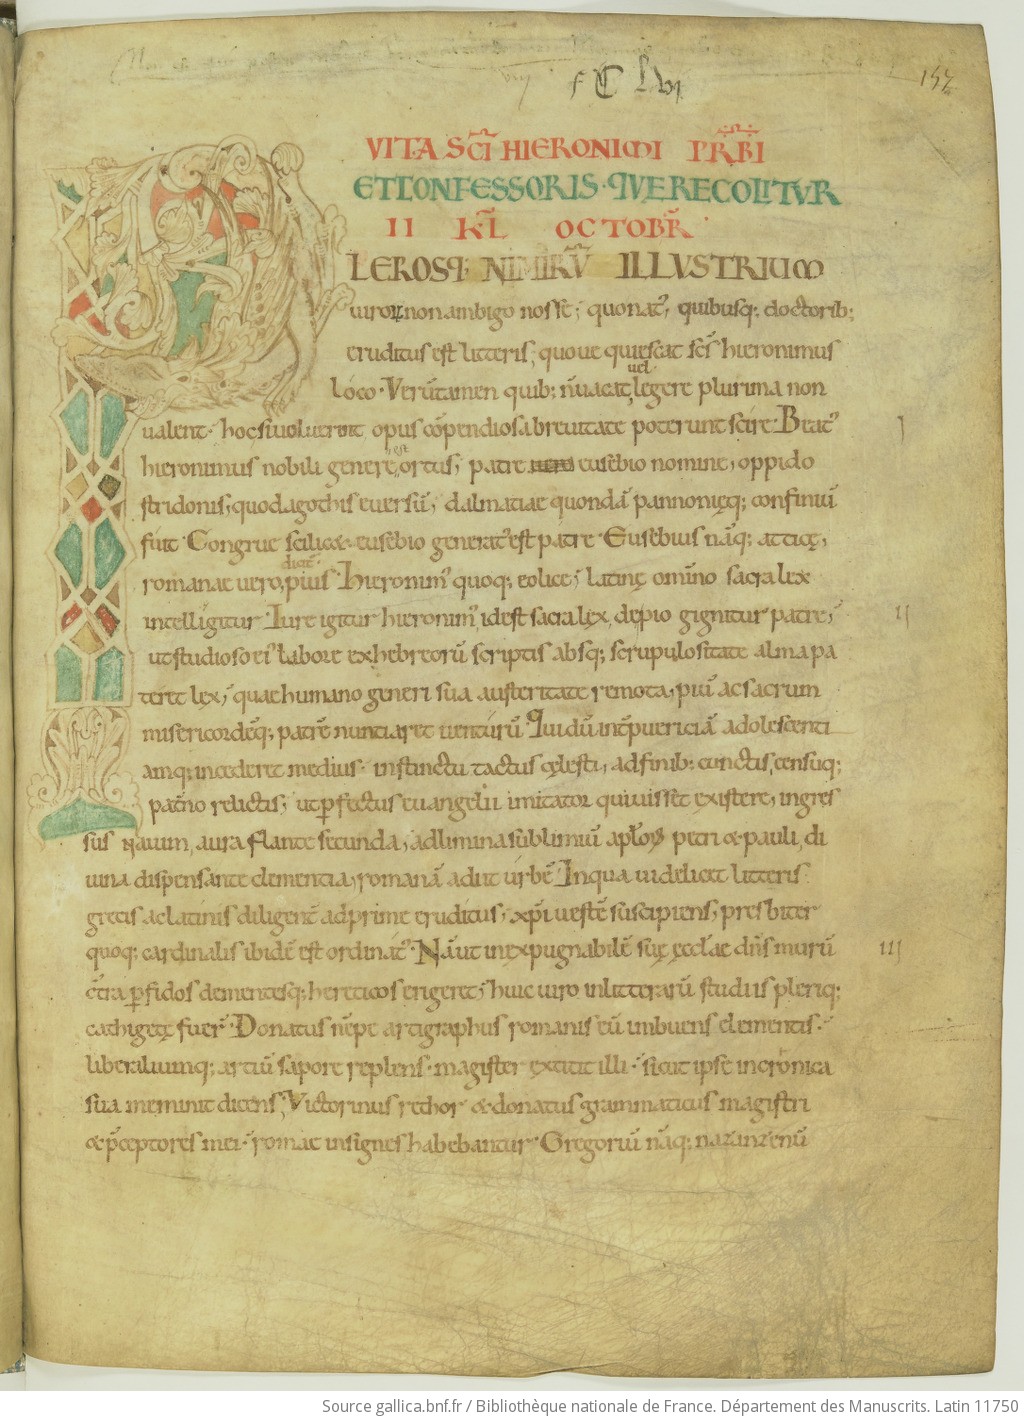 f CLVI
157
VITA SC̄I HIERONIMI PR̄B̄I
ET CONFESSORIS · QVE RECOLITVR
II KL̄ OCTOB̄R
PLEROSQ; NIMIRV̄ ILLVSTRIUM
uiror̄ non ambigo nosse; quonat', quibusq; doctorib;
eruditus est litteris, quoue quiescat sc̄s hieronimus
uel
loco · Verūtamen quib; n̄ uacat legere plurima non
ualent · hoc si uoluerint, opus cōpendiosa breuitate poterunt scire. Beat'
I
est
hieronimus nobili genere ortus, patre eusebio nomine, oppido
stridonis, quod a gothis euersū, dalmatiae quondā pannonięq; confiniū
fuit · Congrue scilicet eusebio generat' est patre · Eusebius nāq; atticę,
dicit'
romanae uero, pius · Hieronim' quoq; eolice, latinę omino sacra lex
intelligitur · Iure igitur hieronim', id est sacra lęx, de pio gignitur patre,
II
ut studioso ei' labore ex hebreorū scriptis absq; scrupulositate alma pa
teret lex, quae humano generi sua austeritate remota, piū ac sacrum
misericordēq; patrē nuntiaret uenturū. Qui dū int̄ puericiā adolescenti
amq; incederet medius · instinctu tactus cęlesti, ad finib; cunctis, censuq;
pat̄no relictis, ut ꝑfectus euangelii imitator quiuisset existere, ingres
sus nauim, aura flante secunda, ad limina sublimiū aplōꝝ petri & pauli, di
uina dispensante clementia, romanā adiit urbē. In qua uidelicet litteris
grecis ac latinis diligent̄ ad prime eruditus, xp̄i uestē suscipiens, presbiter
quoq; cardinalis ibidē est ordinat'. Nā ut inexpugnabilē suę ęcclae dn̄s murū
III
c̄tra ꝑfidos dementesq; hereticos erigeret, huic uiro in litterarū studiis pleriq;
cathigetę fuer̄. Donatus nēpe artigraphus romanis eū imbuens elementis
liberaliumq; artiū sapore replens · magister extitit illi · sicut ipse in cronica
sua meminit dicens, Victorinus rethor & donatus grammaticus magistri
& p̄ceptores mei · romae insignes habebantur · Gregoriū nāq; nazanzenū
Source gallica.bnf.fr / Bibliothèque nationale de France. Département des Manuscrits. Latin 11750